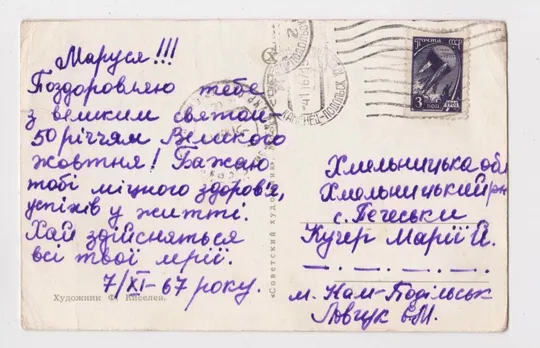 Маруся!!!
Поздоровляю тебе
з великим святом
50 річчям Великого
жовтня! Бажаю
тобі міцного здоров'я,
успіхів у житті.
Хай здійсняться
всі твої мрії.
7/XI-67 року.
Художник Ф. Киселев.
«Советский художник»
ПОЧТА СССР
3 коп
КАМЕНЕЦ-ПОДОЛЬСК
Хмельницька обл
Хмельницький рн
с. Печеськи
Кучер Марії Й.
м. Кам-Подільськ